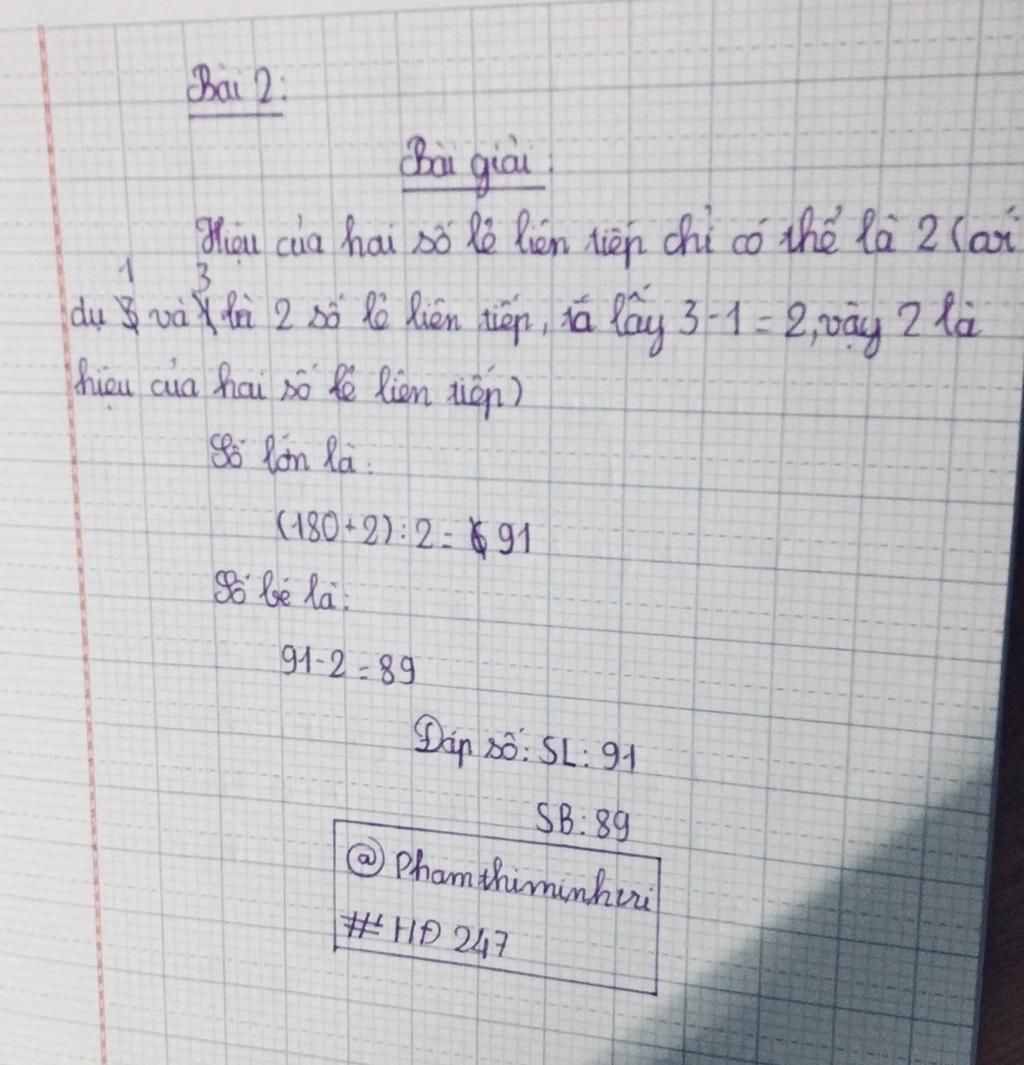 Bài 2:
Bài giải:
Hiệu của hai số lẻ liên tiếp chỉ có thể là 2 (ví
dụ 1 và 3 là 2 số lẻ liên tiếp, ta lấy 3-1=2, vậy 2 là
hiệu của hai số lẻ liên tiếp)
Số lớn là:
(180+2):2= 91
Số bé là:
91-2=89
Đáp số: SL: 91
SB: 89
@ Phamthiminhtri
# HĐ 247